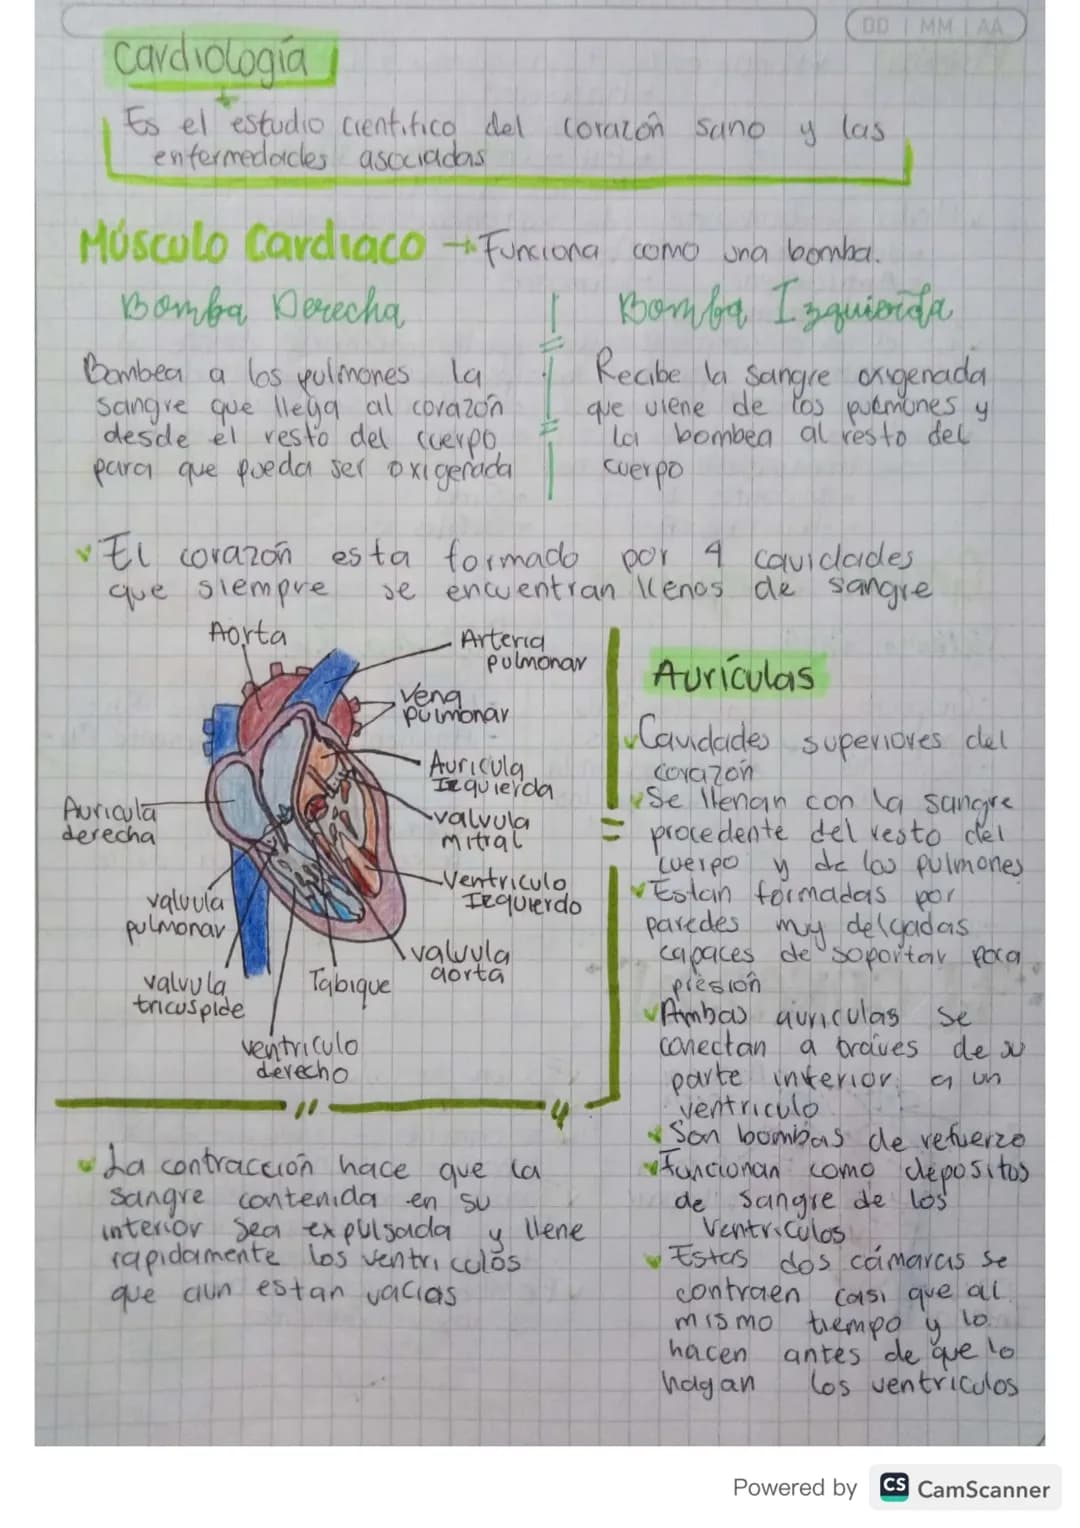 DD | MM | AA
Cardiología
Es el estudio cientifico del corazón sano y las
enfermedades asociadas
Músculo Cardiaco → Funciona como una bomba.
Bomba Derecha
Bombea a los pulmones la
sangre que llega al corazón
desde el resto del cuerpo
para que pueda ser oxigenada
Bomba Izquierda
Recibe la sangre oxigenada
que viene de los pulmones y
la bombea al resto del
cuerpo
El corazón esta formado por 4 cavidades
que siempre se encuentran llenos de sangre
Aorta
Arteria
pulmonar
Vena
pulmonar
Auricula
Izquierda
valvula
mitral
Ventriculo
Izquierdo
valvula
aorta
Auricula
derecha
valvula
pulmonar
valvula
tricuspide
Tabique
ventriculo
derecho
La contracción hace que la
sangre contenida en su
interior sea expulsada y llene
rapidamente los ventriculos
que aun estan vacias
Aurículas
Cavidades superiores del
corazón
Se llenan con la sangre
procedente del resto del
cuerpo y de los pulmones
Estan formadas por
paredes muy delgadas
capaces de soportar poca
presión
Ambas auriculas se
conectan a traves de su
parte inferior a un
ventriculo
Son bombas de refuerzo
Funcionan como depositos
de sangre de los
Ventriculos
Estas dos cámaras se
contraen casi que al
mismo tiempo y lo
hacen antes de que lo
hagan los ventriculos
Powered by CS CamScanner